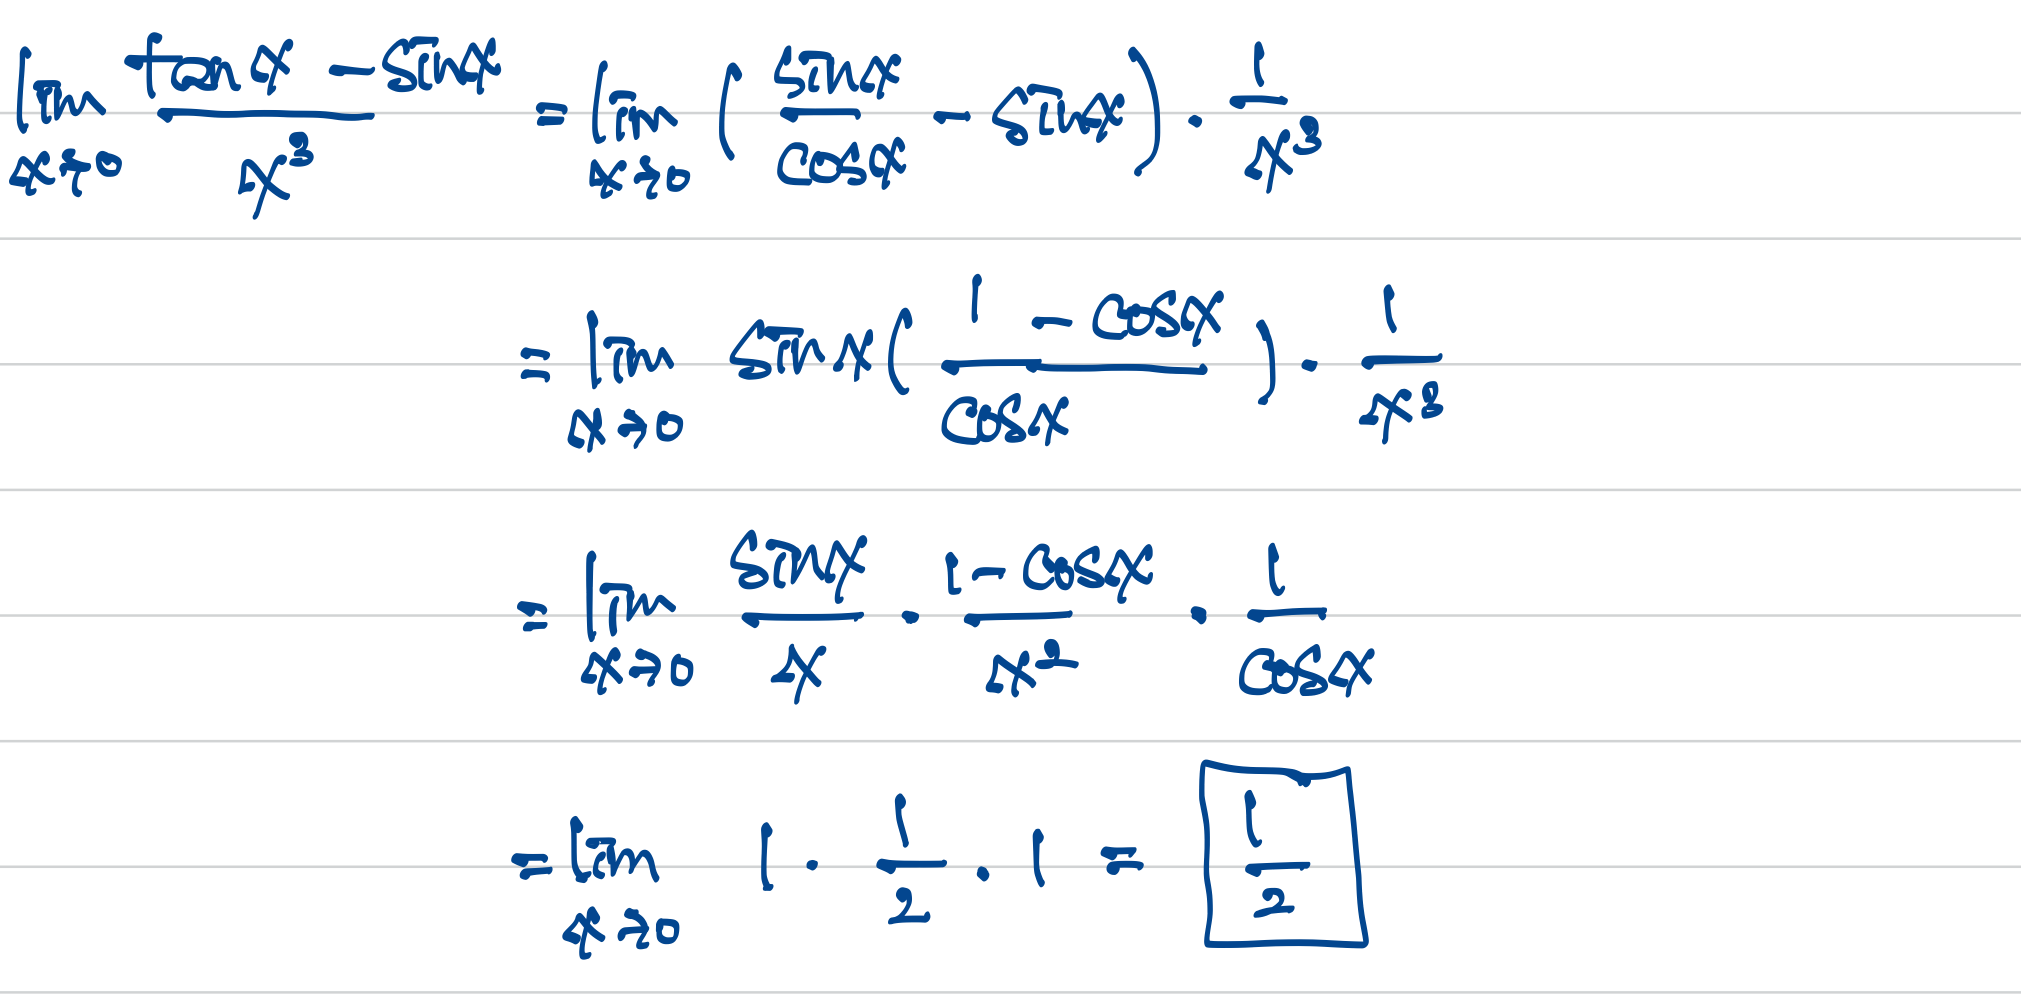 lim_{x→0} (tan x − sin x)/x³ = lim_{x→0} (sin x/cos x − sin x) · 1/x³
= lim_{x→0} sin x ((1 − cos x)/cos x) · 1/x³
= lim_{x→0} sin x/x · (1 − cos x)/x² · 1/cos x
= lim_{x→0} 1 · 1/2 · 1 = 1/2